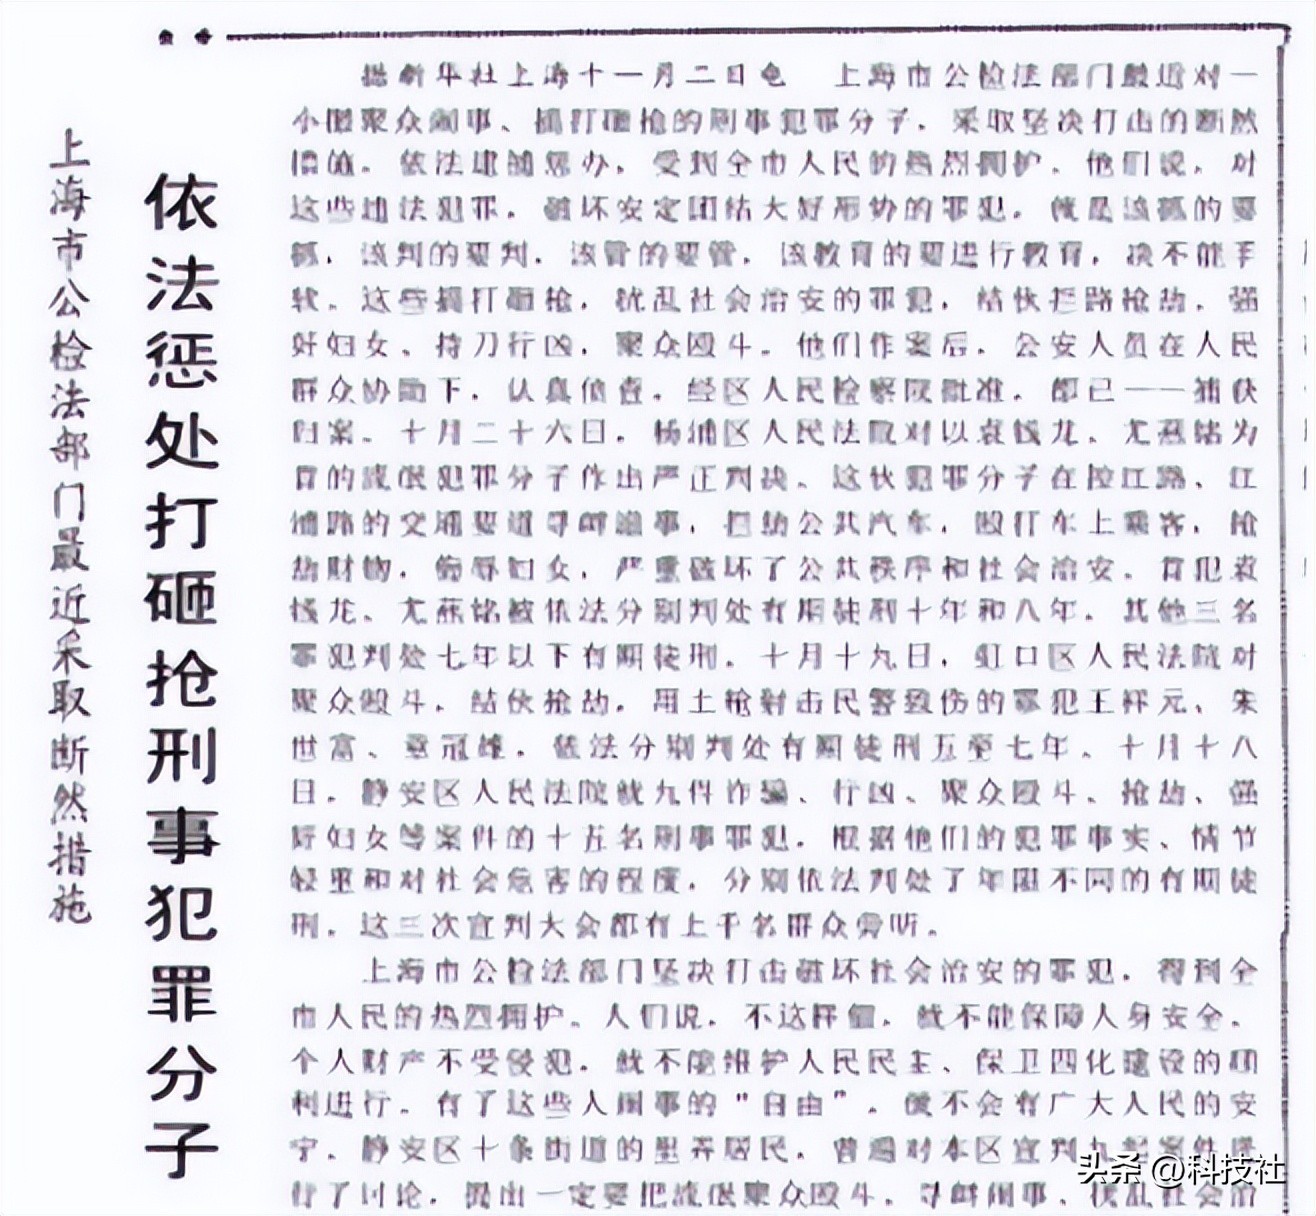 上海市公检法部门最近采取断然措施
依法惩处打砸抢刑事犯罪分子
据新华社上海十一月二日电　上海市公检法部门最近对一
小撮聚众闹事、抓打砸抢的刑事犯罪分子，采取坚决打击的断然
措施。依法逮捕惩办，受到全市人民的热烈拥护。他们说，对
这些违法犯罪，破坏安定团结大好形势的罪犯，就是该抓的要
抓，该判的要判，该管的要管，该教育的要进行教育，决不能手
软。这些搞打砸抢，扰乱社会治安的罪犯，结伙拦路抢劫，强
奸妇女，持刀行凶，聚众殴斗。他们作案后，公安人员在人民
群众协助下，认真侦查。经区人民检察院批准，都已一一捕获
归案。十月二十六日，杨浦区人民法院对以袁钱龙、尤燕铭为
首的流氓犯罪分子作出严正判决。这伙犯罪分子在控江路、江
浦路的交通要道寻衅滋事，拦劫公共汽车，殴打车上乘客，抢
劫财物，侮辱妇女，严重破坏了公共秩序和社会治安。首犯袁
钱龙、尤燕铭被依法分别判处有期徒刑十年和八年。其他三名
罪犯判处七年以下有期徒刑。十月十九日，虹口区人民法院对
聚众殴斗，结伙抢劫，用土枪射击民警致伤的罪犯王祥元、朱
世富、 冠雄，依法分别判处有期徒刑五至七年。十月十八
日，静安区人民法院就九件诈骗、行凶、聚众殴斗、抢劫、强
奸妇女等案件的十五名刑事罪犯，根据他们的犯罪事实、情节
轻重和对社会危害的程度，分别依法判处了年限不同的有期徒
刑。这三次宣判大会都有上千名群众旁听。
上海市公检法部门坚决打击破坏社会治安的罪犯，得到全
市人民的热烈拥护。人们说，不这样做，就不能保障人身安全、
个人财产不受侵犯，就不能维护人民民主、保卫四化建设的顺
利进行。有了这些人闹事的“自由”，便不会有广大人民的安
宁。静安区十条街道的里弄居民，曾通对本区宣判九起案件进
行了讨论，提出一定要把流氓聚众殴斗、寻衅闹事、扰乱社会治
头条 @科技社